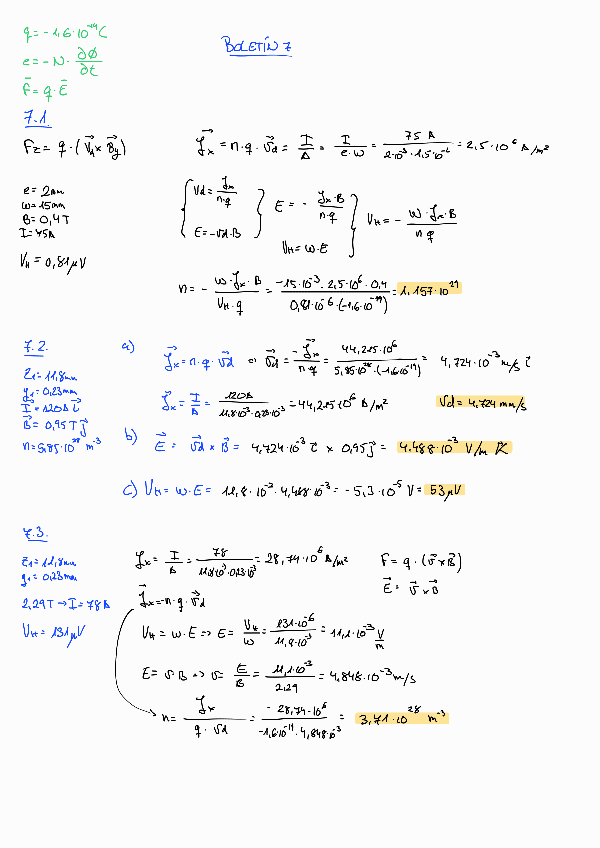 q = -1,6·10⁻¹⁹ C
BOLETÍN 7
e = -N · ∂Ø/∂t
F⃗ = q · E⃗
7.1.
Fz = q · (V⃗d × B⃗y)
J⃗x = n·q·v⃗d = I/A = I/(e·w) = 75 A/(2·10⁻³·1,5·10⁻²) = 2,5·10⁶ A/m²
e = 2mm
w = 15mm
B = 0,4 T
I = 75A
V_H = 0,81 μV
{ Vd = Jx/(n·q)
E = -vd·B }
E = - Jx·B/(n·q)
V_H = w·E }
V_H = - w·Jx·B/(n q)
n = - w·Jx·B/(V_H·q) = -15·10⁻³·2,5·10⁶·0,4/(0,81·10⁻⁶·(-1,6·10⁻¹⁹)) = 1,157·10²⁹
7.2.
a) J⃗x = n·q·v⃗d ⇒ v⃗d = -J⃗x/(n·q) = 44,215·10⁶/(5,85·10²⁸·(-1,6·10⁻¹⁹)) = 4,724·10⁻³ m/s i⃗
z1 = 11,8mm
y1 = 0,23mm
I⃗ = 120A i⃗
B⃗ = 0,95 T j⃗
n = 5,85·10²⁸ m⁻³
J⃗x = I/A = 120A/(11,8·10⁻³·0,23·10⁻³) = 44,215·10⁶ A/m²
Vd = 4,724 mm/s
b) E⃗ = v⃗d × B⃗ = 4,724·10⁻³ i⃗ × 0,95 j⃗ = 4.488·10⁻³ V/m k⃗
c) V_H = w·E = 11,8·10⁻³·4,488·10⁻³ = -5,3·10⁻⁵ V = 53 μV
7.3.
z1 = 11,8mm
y1 = 0,23mm
2,29T → I = 78A
V_H = 131 μV
Jx = I/A = 78/(11,8·10⁻³·0,23·10⁻³) = 28,74·10⁶ A/m²
F = q·(v⃗ × B⃗)
J⃗x = -n·q·v⃗d
E⃗ = v⃗ × B⃗
V_H = w·E ⇒ E = V_H/w = 131·10⁻⁶/11,8·10⁻³ = 11,1·10⁻³ V/m
E = v·B ⇒ v = E/B = 11,1·10⁻³/2,29 = 4,848·10⁻³ m/s
n = Jx/(q·vd) = -28,74·10⁶/(-1,6·10⁻¹⁹·4,848·10⁻³) = 3,71·10²⁸ m⁻³